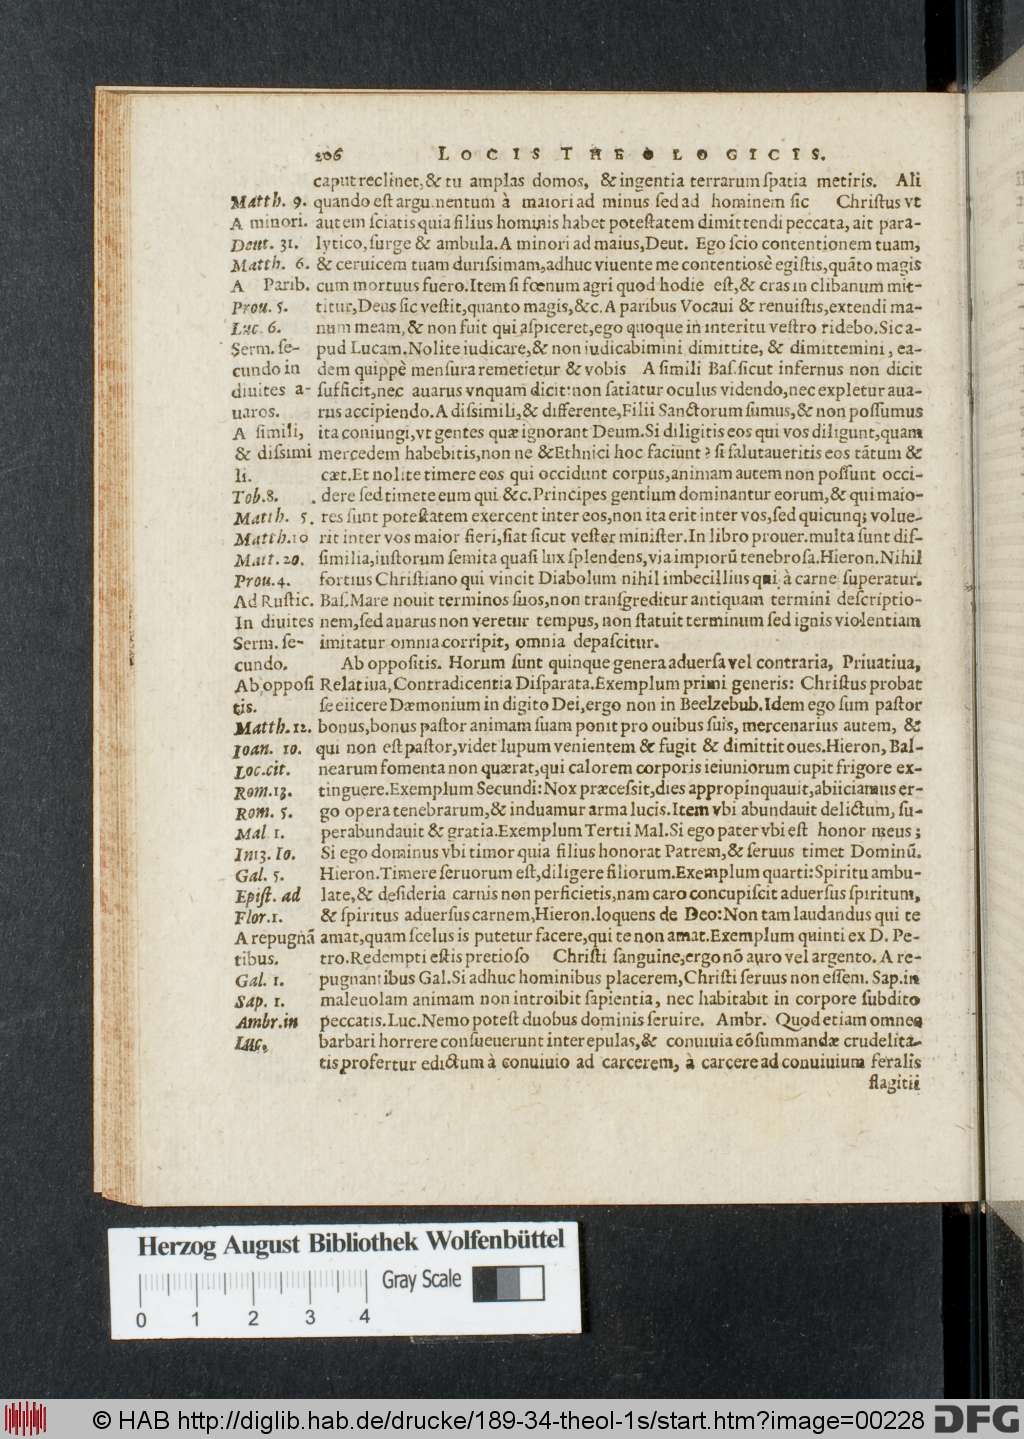 206 LOCIS THEOLOGICIS.
caput reclinet, & tu amplas domos, & ingentia terrarum ſpatia metiris. Ali
Matth. 9. quando eſt argumentum à maiori ad minus ſed ad hominem ſic Chriſtus vt
A minori. autem ſciatis quia filius hominis habet poteſtatem dimittendi peccata, ait para-
Deut. 31. lytico, ſurge & ambula. A minori ad maius, Deut. Ego ſcio contentionem tuam,
Matth. 6. & ceruicem tuam duriſsimam, adhuc viuente me contentiosè egiſtis, quãto magis
A Parib. cum mortuus fuero. Item ſi fœnum agri quod hodie eſt, & cras in clibanum mit-
Prou. 5. titur, Deus ſic veſtit, quanto magis, &c. A paribus Vocaui & renuiſtis, extendi ma-
Luc. 6. num meam, & non fuit qui aſpiceret, ego quoque in interitu veſtro ridebo. Sic a-
Serm. ſe- pud Lucam. Nolite iudicare, & non iudicabimini dimittite, & dimittemini, ea-
cundo in dem quippè menſura remetietur & vobis A ſimili Baſ. ſicut infernus non dicit
diuites a- ſufficit, nec auarus vnquam dicit: non ſatiatur oculus videndo, nec expletur aua-
uaros. rus accipiendo. A diſsimili, & differente, Filii Sanctorum ſumus, & non poſſumus
A ſimili, ita coniungi, vt gentes quæ ignorant Deum. Si diligitis eos qui vos diligunt, quam
& diſsimi mercedem habebitis, non ne & Ethnici hoc faciunt? ſi ſalutaueritis eos tãtum &
li. cæt. Et nolite timere eos qui occidunt corpus, animam autem non poſſunt occi-
Tob. 8. dere ſed timete eum qui &c. Principes gentium dominantur eorum, & qui maio-
Matth. 5. res ſunt poteſtatem exercent inter eos, non ita erit inter vos, ſed quicunq; volue-
Matth. 10 rit inter vos maior fieri, ſiat ſicut veſter miniſter. In libro prouer. multa ſunt diſ-
Matt. 20. ſimilia, iuſtorum ſemita quaſi lux ſplendens, via impiorũ tenebroſa. Hieron. Nihil
Prou. 4. fortius Chriſtiano qui vincit Diabolum nihil imbecillius qui à carne ſuperatur.
Ad Ruſtic. Baſ. Mare nouit terminos ſuos, non tranſgreditur antiquam termini deſcriptio-
In diuites nem, ſed auarus non veretur tempus, non ſtatuit terminum ſed ignis violentiam
Serm. ſe- imitatur omnia corripit, omnia depaſcitur.
cundo. Ab oppoſitis. Horum ſunt quinque genera aduerſa vel contraria, Priuatiua,
Ab oppoſi Relatiua, Contradicentia Diſparata. Exemplum primi generis: Chriſtus probat
tis. ſe eiicere Dæmonium in digito Dei, ergo non in Beelzebub. Idem ego ſum paſtor
Matth. 12. bonus, bonus paſtor animam ſuam ponit pro ouibus ſuis, mercenarius autem, &
Ioan. 10. qui non eſt paſtor, videt lupum venientem & fugit & dimittit oues. Hieron, Bal-
Loc. cit. nearum fomenta non quærat, qui calorem corporis ieiuniorum cupit frigore ex-
Rom. 13. tinguere. Exemplum Secundi: Nox præceſsit, dies appropinquauit, abiiciamus er-
Rom. 5. go opera tenebrarum, & induamur arma lucis. Item vbi abundauit delictum, ſu-
Mal 1. perabundauit & gratia. Exemplum Tertii Mal. Si ego pater vbi eſt honor meus;
In 13. Io. Si ego dominus vbi timor quia filius honorat Patrem, & ſeruus timet Dominũ.
Gal. 5. Hieron. Timere ſeruorum eſt, diligere filiorum. Exemplum quarti: Spiritu ambu-
Epiſt. ad late, & deſideria carnis non perficietis, nam caro concupiſcit aduerſus ſpiritum,
Flor. 1. & ſpiritus aduerſus carnem, Hieron. loquens de Deo: Non tam laudandus qui te
A repugnã amat, quam ſcelus is putetur facere, qui te non amat. Exemplum quinti ex D. Pe-
tibus. tro. Redempti eſtis pretioſo Chriſti ſanguine, ergo nõ auro vel argento. A re-
Gal. 1. pugnantibus Gal. Si adhuc hominibus placerem, Chriſti ſeruus non eſſem. Sap. in
Sap. 1. maleuolam animam non introibit ſapientia, nec habitabit in corpore ſubdito
Ambr. in peccatis. Luc. Nemo poteſt duobus dominis ſeruire. Ambr. Quod etiam omnes
Luc. barbari horrere conſueuerunt inter epulas, & conuiuia cõſummandæ crudelita-
tis profertur edictum à conuiuio ad carcerem, à carcere ad conuiuium feralis
flagitii
Herzog August Bibliothek Wolfenbüttel
Gray Scale
0 1 2 3 4
© HAB http://diglib.hab.de/drucke/189-34-theol-1s/start.htm?image=00228 DFG